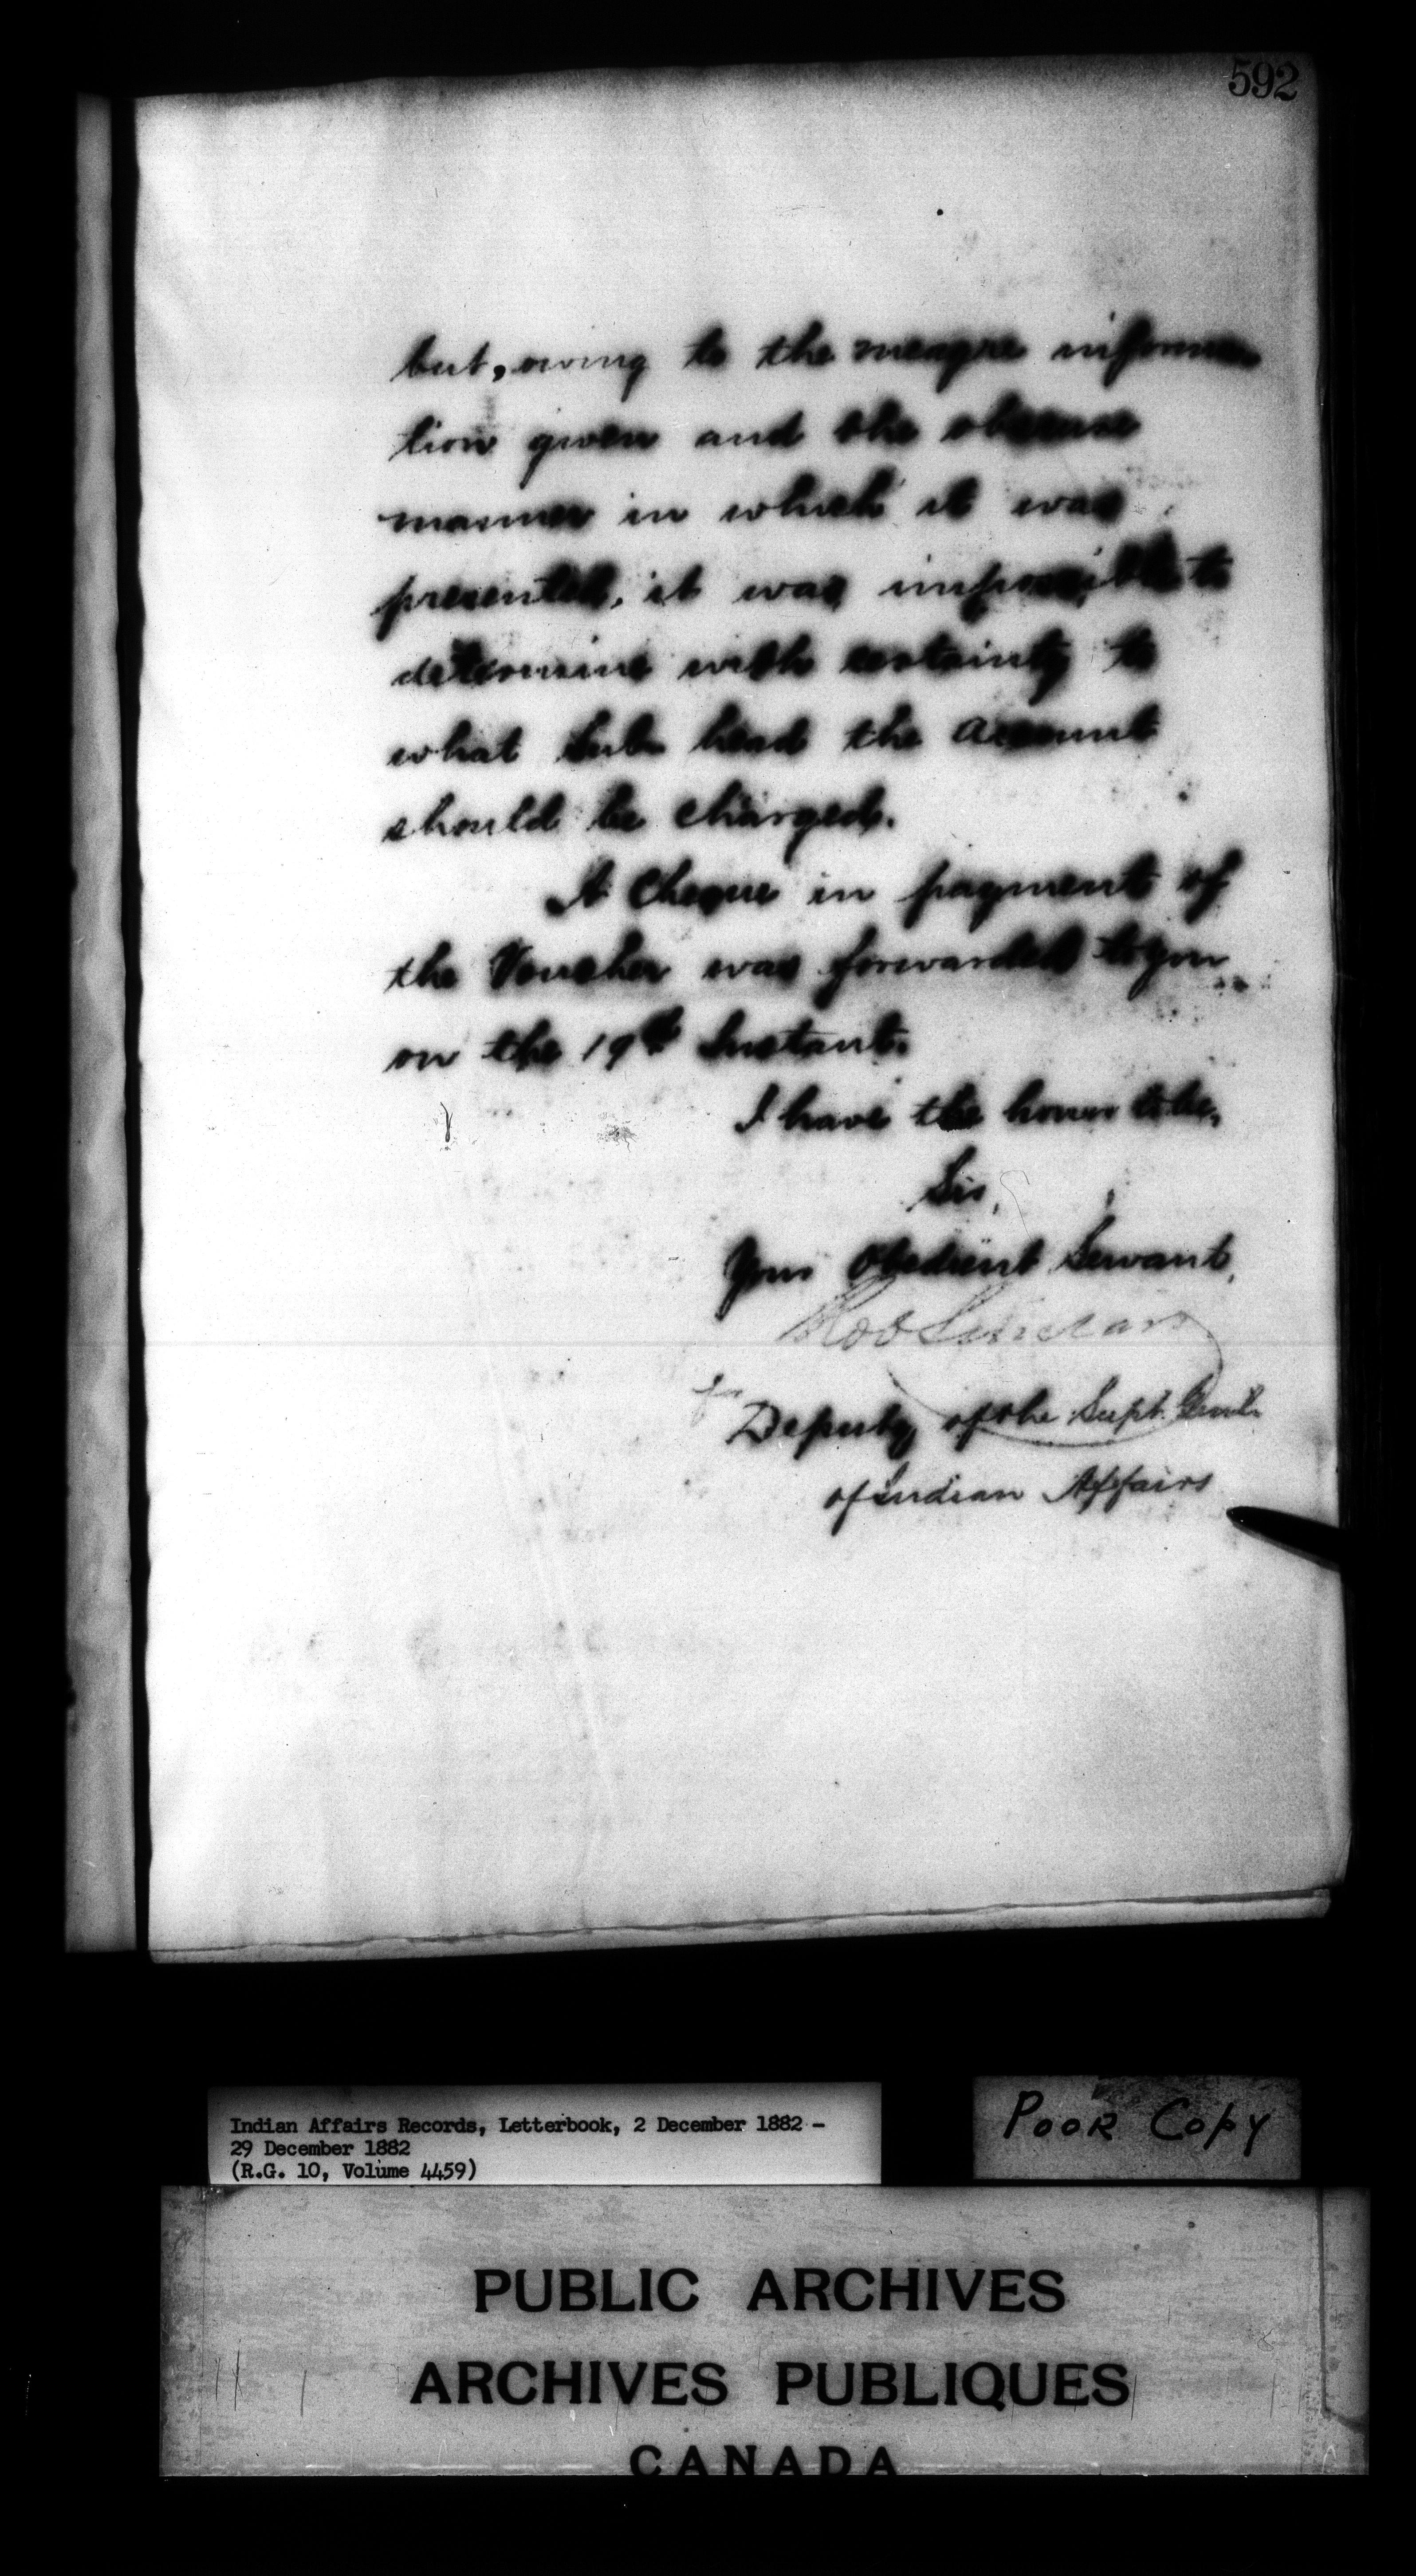 592
but, owing to the meagre informa
tion given and the obscure
manner in which it was
presented, it was impossible to
determine with certainty to
what Sub head the account
should be charged.
A Cheque in payment of
the Voucher was forwarded to you
on the 19th Instant.
I have the honor to be,
Sir,
Your Obedient Servant,
Rob Sinclair
for Deputy of the Supt. Genl.
of Indian Affairs
Indian Affairs Records, Letterbook, 2 December 1882 -
29 December 1882
(R.G. 10, Volume 4459)
POOR COPY
PUBLIC ARCHIVES
ARCHIVES PUBLIQUES
CANADA